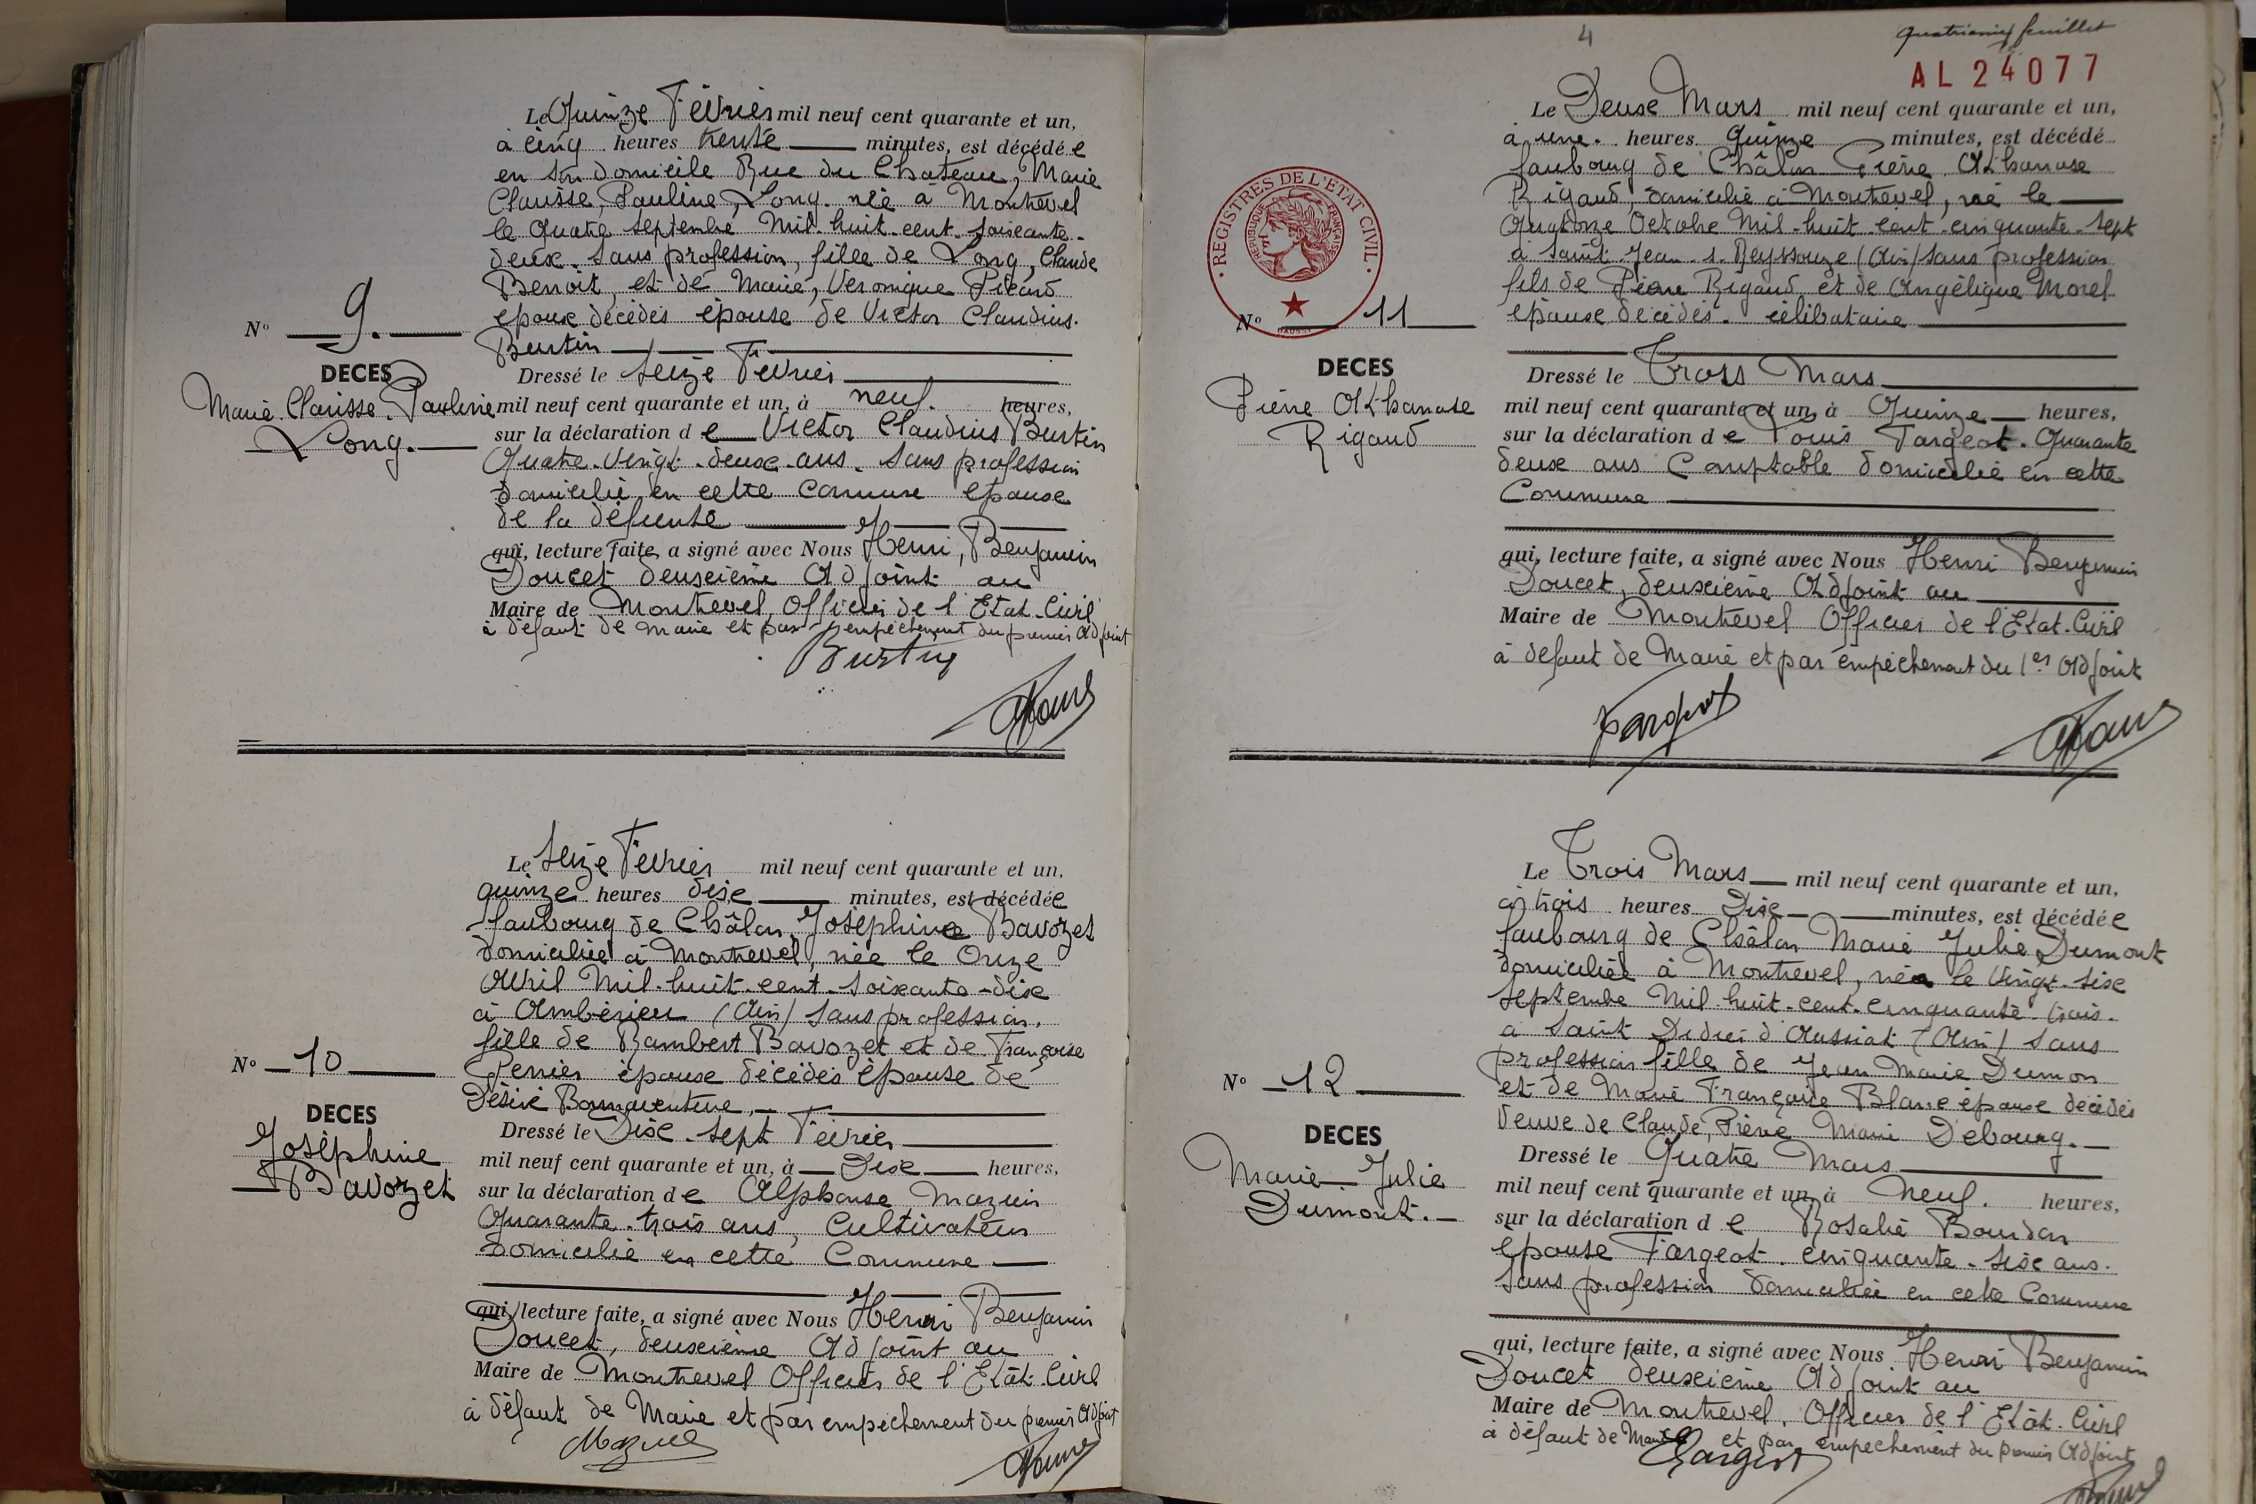 Le Quinze Février mil neuf cent quarante et un,
à cinq heures trente minutes, est décédée
en son domicile Rue du Château, Marie
Clarisse, Pauline, Long. née à Montrevel
le Quatre septembre Mil-huit-cent-soixante-
deux. sans profession, fille de Long, Claude
Benoit, et de Marie, Véronique Picard
époux décédés épouse de Victor Claudius.
Burtin
N° 9.
DECES
Marie. Clarisse. Pauline
Long.
Dressé le Seize Février
mil neuf cent quarante et un, à neuf. heures,
sur la déclaration de Victor Claudius Burtin
Quatre-vingt-deux ans. sans profession
domicilié en cette commune époux
de la défunte
qui, lecture faite, a signé avec Nous Henri, Benjamin
Doucet deuxième Adjoint au
Maire de Montrevel, Officier de l'Etat-Civil
à défaut de Maire et par empêchement du premier Adjoint
Burtin
Le Seize Février mil neuf cent quarante et un,
quinze heures dix minutes, est décédée
faubourg de Châlon, Joséphine Bavozet
domiciliée à Montrevel, née le Onze
Avril Mil-huit-cent-soixante-dix
à Ambérieu (Ain) sans profession,
fille de Rambert Bavozet et de Françoise
Perrier époux décédés épouse de
Désiré Bonnaventure,
N° 10
DECES
Joséphine
Bavozet
Dressé le Dix-sept Février
mil neuf cent quarante et un, à Dix heures,
sur la déclaration de Alphonse Mazuir
Quarante-trois ans, Cultivateur
domicilié en cette Commune
qui, lecture faite, a signé avec Nous Henri Benjamin
Doucet, deuxième Adjoint au
Maire de Montrevel Officier de l'Etât-Civil
à défaut de Maire et par empêchement du premier Adjoint
4
quatrième feuillet
AL 24077
Le Deux Mars mil neuf cent quarante et un,
à une heures Quinze minutes, est décédé
faubourg de Châlon Pierre Athanase
Rigaud, domicilié à Montrevel, né le
Quatorze Octobre Mil-huit-cent-cinquante-sept
à Saint-Jean-s-Reyssouze (Ain) sans profession
fils de Pierre Rigaud et de Angélique Morel
époux décédés. célibataire
REGISTRES DE L'ETAT CIVIL
REPUBLIQUE FRANÇAISE
N° 11
DECES
Pierre Athanase
Rigaud
Dressé le Trois Mars
mil neuf cent quarante et un, à Quinze heures,
sur la déclaration de Louis Fargeot. Quarante
deux ans Comptable domicilié en cette
Commune
qui, lecture faite, a signé avec Nous Henri Benjamin
Doucet, deuxième Adjoint au
Maire de Montrevel Officier de l'Etat-Civil
à défaut de Maire et par empêchement du 1er Adjoint
Fargeot
Le Trois Mars mil neuf cent quarante et un,
à trois heures Dix minutes, est décédée
faubourg de Châlon Marie Julie Dumont
domiciliée à Montrevel, née le Vingt-six
Septembre Mil-huit-cent-cinquante-trois-
à Saint Didier d'Aussiat (Ain) sans
profession fille de Jean Marie Dumon
et de Marie Françoise Blanc époux décédés
Veuve de Claude, Pierre Marie Debourg.
N° 12
DECES
Marie Julie
Dumont.
Dressé le Quatre Mars
mil neuf cent quarante et un, à neuf. heures,
sur la déclaration de Rosalie Bourdon
épouse Fargeot. cinquante-six ans.
sans profession domiciliée en cette Commune
qui, lecture faite, a signé avec Nous Henri Benjamin
Doucet deuxième Adjoint au
Maire de Montrevel, Officier de l'Etât-Civil
à défaut de Maire et par empêchement du premier Adjoint
Fargeot